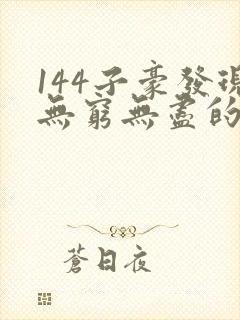 144子豪發現
無窮無盡的
蒼日夜